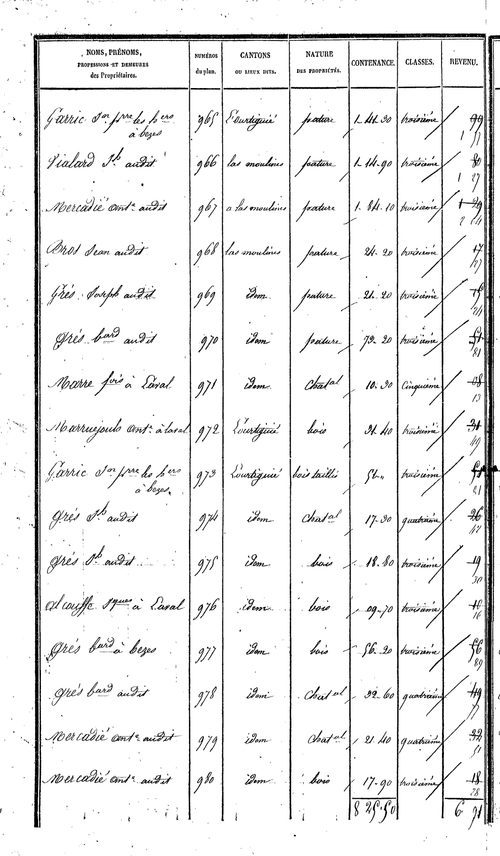 NOMS, PRÉNOMS, PROFESSIONS ET DEMEURES des Propriétaires. NUMÉROS du plan. CANTONS OU LIEUX DITS. NATURE DES PROPRIÉTÉS. CONTENANCE. CLASSES. REVENU.
Garric Jn pre les hers 965 L'ourtiguié pature 1. 41. 30 troisième
à bezes
Vialard Jh audit 966 las moulines pature 1. 14. 90 troisième 80
1 27
Mercadié ant.e audit 967 a las moulines pature 1. 84. 10 troisième 1 29
2 04
Brot Jean audit 968 las moulines pature 24. 20 troisième 17
27
Grés Joseph audit 969 idem pature 21. 20 troisième 15
Grés bard audit 970 idem pature 73. 20 troisième 51
81
Marre fois à Laval 971 idem chat.al 10. 30 cinquième 08
13
Marruejouls ant.e à laval 972 L'ourtiguié bois 31. 40 troisième 31
49
Garric Jn pre les hers 973 L'ourtiguié bois taillis troisième 51
à bezes. 81
Grés Jh audit 974 idem chat.al 17. 30 quatrième 26
Grés Jh audit 975 idem bois 18. 80 troisième 19
30
Jques à Laval 976 idem bois 09. 70 troisième 10
16
Grés bard à bezes 977 idem bois 56. 20 troisième 56
89
Grés bard audit 978 idem chat.al 32. 60 quatrième 49
77
Mercadié ant.e audit 979 idem chat.al 21. 40 quatrième 32
51
Mercadié ant.e audit 980 idem bois 17. 90 troisième 18
28
8 25. 50 6 71